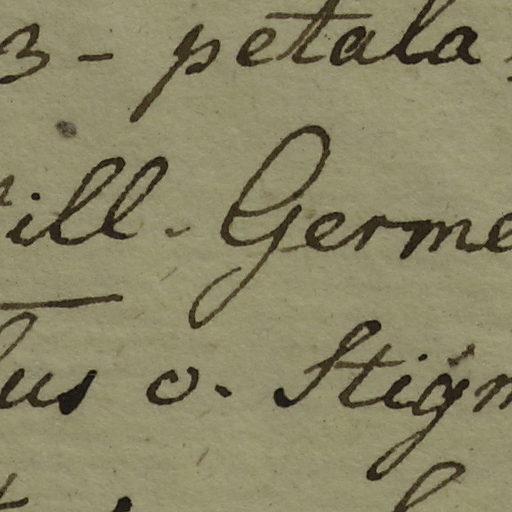 3 - petala
ill. Germe
us o. Stigm